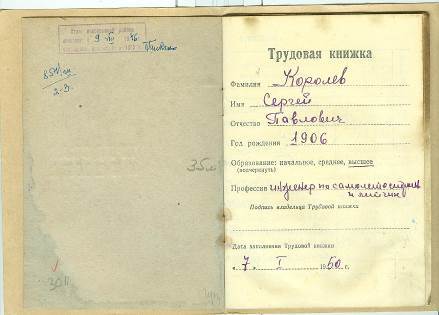 9 VII 1946
35л
3011
Трудовая книжка
Фамилия Королев
Имя Сергей
Отчество Павлович
Год рождения 1906
Образование: начальное, среднее, высшее
(подчеркнуть)
Профессия инженер по самолетостроению
и летчик
Подпись владельца Трудовой книжки
Дата заполнения Трудовой книжки
„ 7 " I 1950 г.